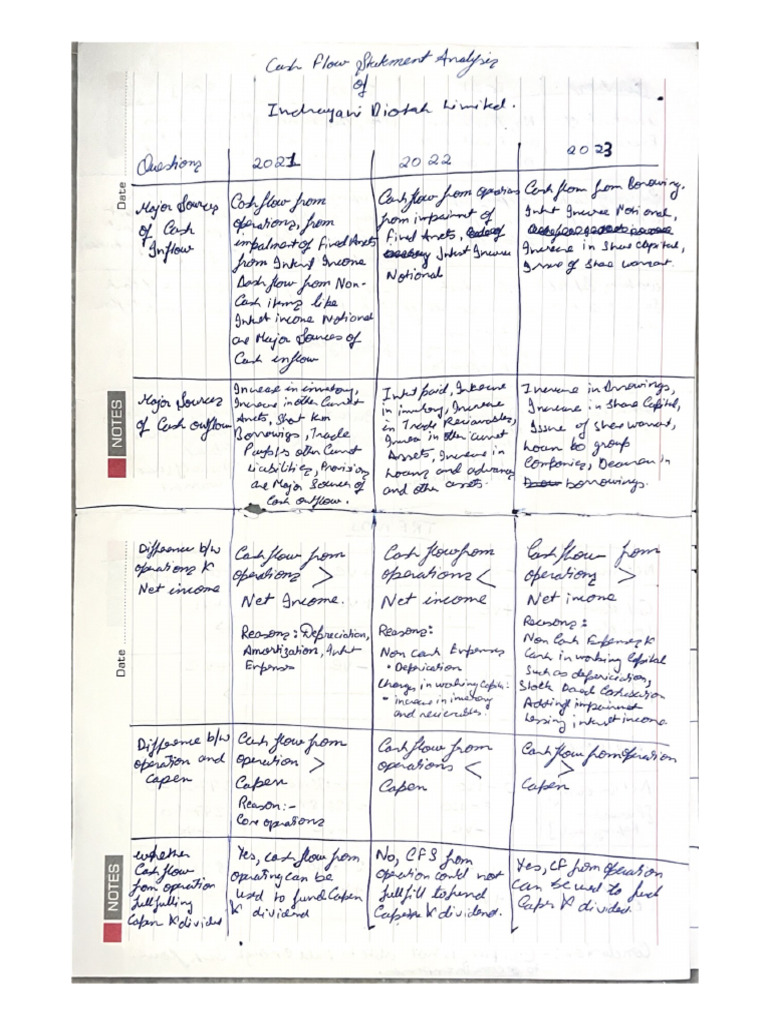 Cash Flow Statement Analysis
of
Indrayani Biotech Limited.
Questions
2021
2022
2023
Date
Major Sources
of Cash
Inflow
Cash flow from
operations, from
impairment of Fixed Assets
from Interest Income
Cash flow from Non-
Cash items like
Interest income Notional
are Major Sources of
Cash inflow
Cash flow from operations
from impairment of
fixed Assets,
Interest Income
Notional
Cash flow from Borrowing,
Interest Income Notional,
Increase in Share capital,
Issue of Share warrant.
NOTES
Major Sources
of Cash outflow
Increase in inventory,
Increase in other Current
Assets, Short term
Borrowings, Trade
Payables other Current
liabilities, Provisions
are Major Sources of
Cash outflow.
Interest paid, Increase
in inventory, Increase
in Trade Receivables,
Increase in other current
Assets, Increase in
Loans and advances
and other assets.
Increase in Borrowings,
Increase in Share Capital,
Issue of Share warrant,
Loan to group
Companies, Decrease in
borrowings.
Date
Difference b/w
operations &
Net income
Cash flow from
operations >
Net Income.
Reasons: Depreciation,
Amortization, Interest
Expenses
Cash flow from
operations <
Net income
Reasons:
Non Cash Expenses
• Depreciation
Changes in working Capital:
• increase in inventory
and receivables.
Cash flow from
operations >
Net income
Reasons:
Non Cash Expenses &
Cash in working Capital
such as depreciation,
Stock Based
Adding impairment
Lessing interest income
Difference b/w
operation and
Capex
Cash flow from
operation >
Capex
Reason:-
Core operations
Cash flow from
operations <
Capex
Cash flow from operation
>
Capex
NOTES
whether
Cash flow
from operation
fullfilling
Capex & dividend
Yes, cash flow from
operating can be
used to fund Capex
& dividend
No, CFS from
operation could not
fullfill to spend
Capex & dividend.
Yes, CF from operation
can be used to fund
Capex & dividend.